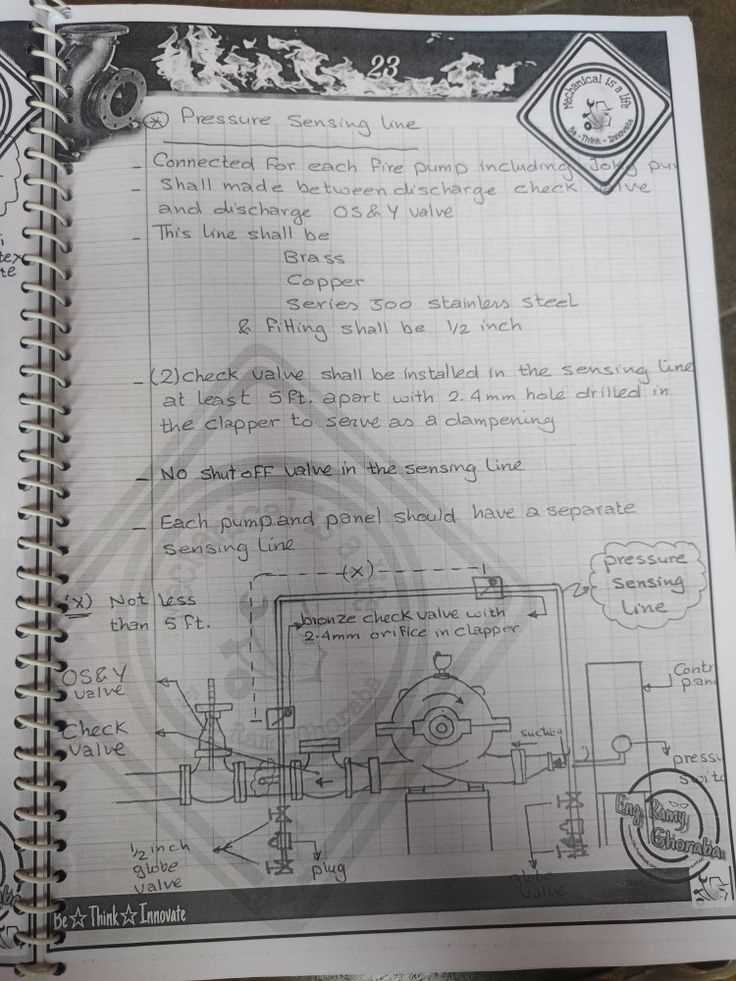 23
Mechanical is a life
Be - Think - Innovate
* Pressure Sensing Line
- Connected for each fire pump including Joky pu
- Shall made between discharge check valve
and discharge OS&Y valve
- This line shall be
Brass
Copper
Series 300 stainless steel
& fitting shall be 1/2 inch
- (2) check valve shall be installed in the sensing line
at least 5 ft. apart with 2.4mm hole drilled in
the clapper to serve as a dampening
- No shutoff valve in the sensing line
- Each pump and panel should have a separate
sensing line
(X)
pressure
sensing
line
(X) Not less
than 5 ft.
bronze check valve with
2.4mm orifice in clapper
OS&Y
valve
Contr
pan
Check
valve
suction
press
switc
1/2 inch
globe
valve
plug
globe
valve
Eng. Ramy
Ghoraba
Be ☆ Think ☆ Innovate